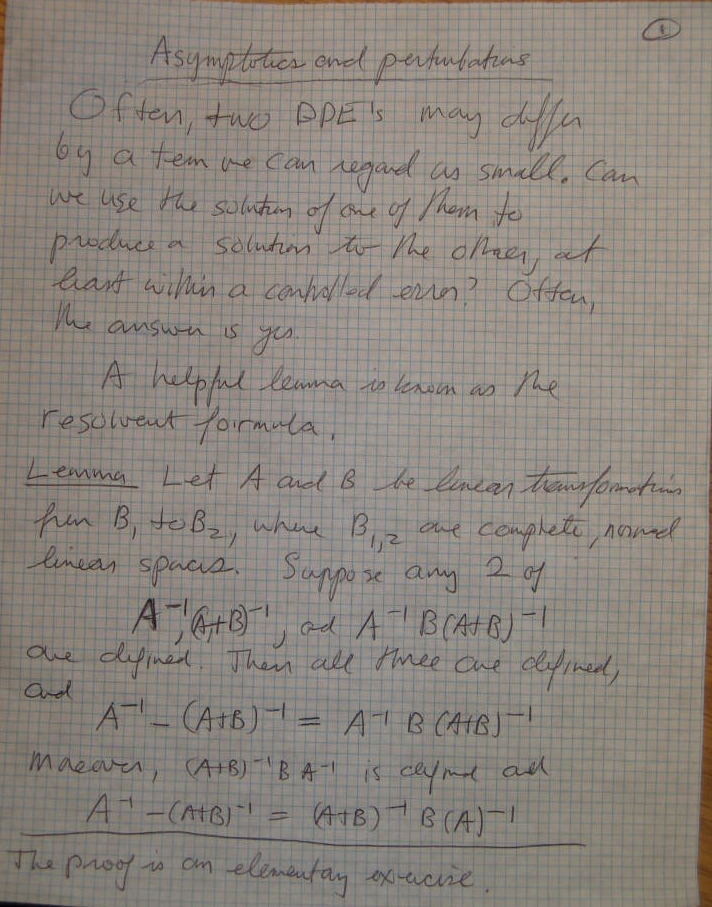 1
Asymptotics and perturbations
Often, two DDE's may differ
by a term we can regard as small. Can
we use the solution of one of them to
produce a solution to the other, at
least within a controlled error? Often,
the answer is yes.
A helpful lemma is known as the
resolvent formula.
Lemma Let A and B be linear transformations
from B₁ to B₂, where B₁,₂ are complete, normed
linear spaces. Suppose any 2 of
A⁻¹, (A+B)⁻¹, ad A⁻¹ B(A+B)⁻¹
are defined. Then all three are defined,
and
A⁻¹ - (A+B)⁻¹ = A⁻¹ B (A+B)⁻¹
Moreover, (A+B)⁻¹ B A⁻¹ is defined ad
A⁻¹ - (A+B)⁻¹ = (A+B)⁻¹ B (A)⁻¹
The proof is an elementary exercise.